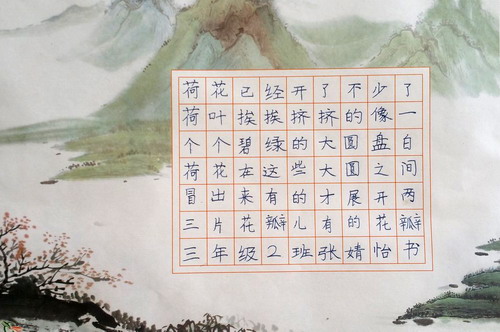 荷花已经开了不少了
荷叶挨挨挤挤的像一
个个碧绿的大圆盘白
荷花在这些大圆之间
冒出来有的才展开两
三片花瓣儿有的花瓣
三年级2班张婧怡书